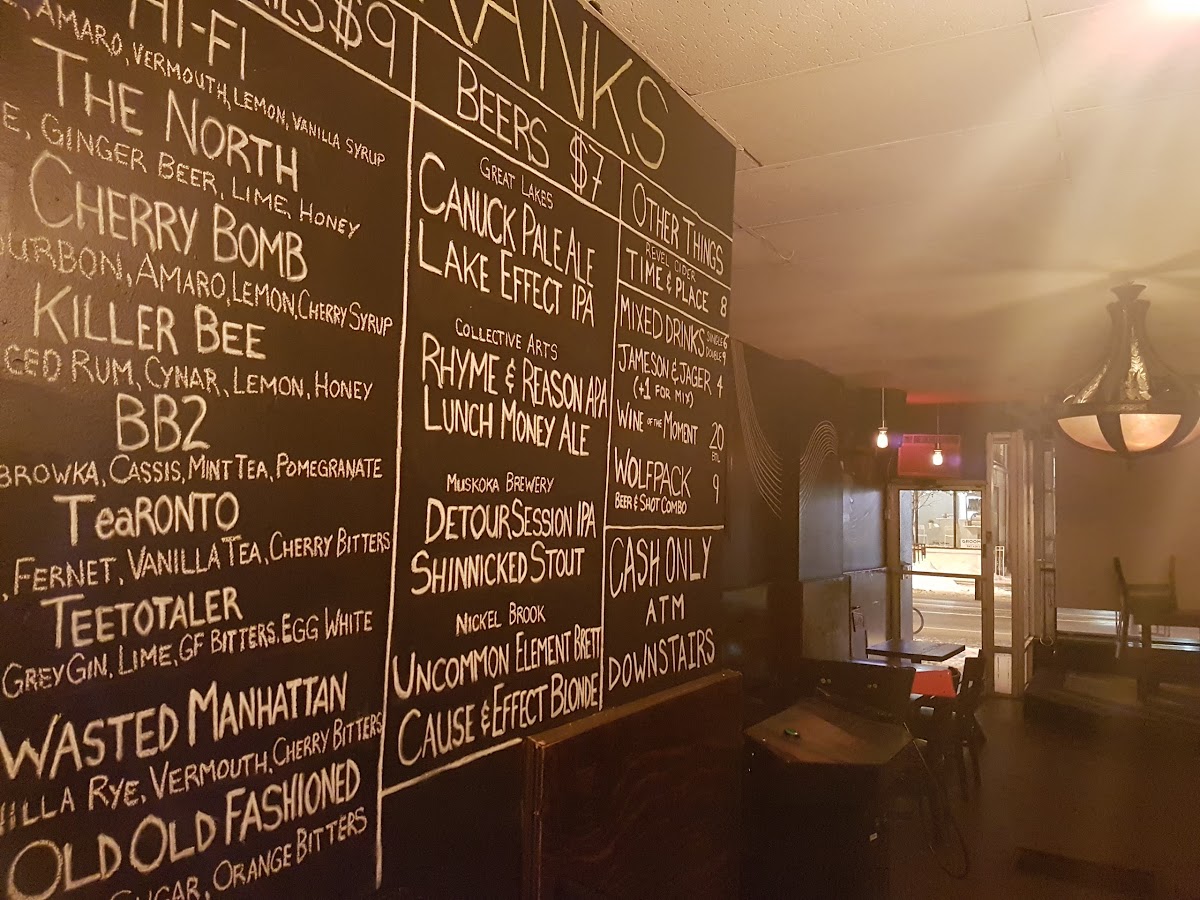 $9
HI-FI
AMARO, VERMOUTH, LEMON, VANILLA SYRUP
THE NORTH
GINGER BEER, LIME, HONEY
CHERRY BOMB
AMARO, LEMON, CHERRY SYRUP
KILLER BEE
RUM, CYNAR, LEMON, HONEY
BB2
CASSIS, MINT TEA, POMEGRANATE
TeaRONTO
FERNET, VANILLA TEA, CHERRY BITTERS
TEETOTALER
GREY GIN, LIME, GF BITTERS, EGG WHITE
WASTED MANHATTAN
RYE, VERMOUTH, CHERRY BITTERS
OLD OLD FASHIONED
SUGAR, ORANGE BITTERS
BEERS $7
GREAT LAKES
CANUCK PALE ALE
LAKE EFFECT IPA
COLLECTIVE ARTS
RHYME & REASON APA
LUNCH MONEY ALE
MUSKOKA BREWERY
DETOUR SESSION IPA
SHINNICKED STOUT
NICKEL BROOK
UNCOMMON ELEMENT BRETT
CAUSE & EFFECT BLONDE
OTHER THINGS
REVEL CIDER
TIME & PLACE 8
MIXED DRINKS SINGLE 6
DOUBLE 9
JAMESON & JAGER 4
(+1 FOR MIX)
WINE OF THE MOMENT 20
BTL
WOLFPACK 9
BEER & SHOT COMBO
CASH ONLY
ATM
DOWNSTAIRS